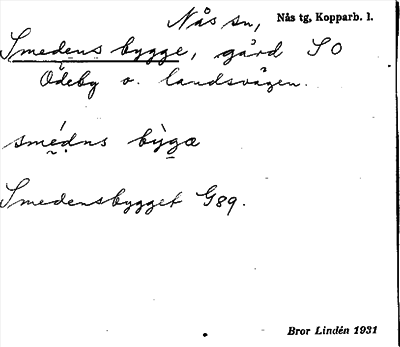 Nås sn, Nås tg, Kopparb. l.
Smedens bygge, gård SO
Ödeby o. landsvägen.
smédns bỳgæ
Smedensbygget G89.
Bror Lindén 1931